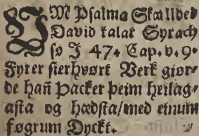 UM Psalma Skællded
David talar Syrach
so J 47. Cap. v. 9.
Fyrer sierhvørt Verk giør-
de hañ Packer þeim heilag-
asta og hædsta/med einum
føgrum Dyckt.